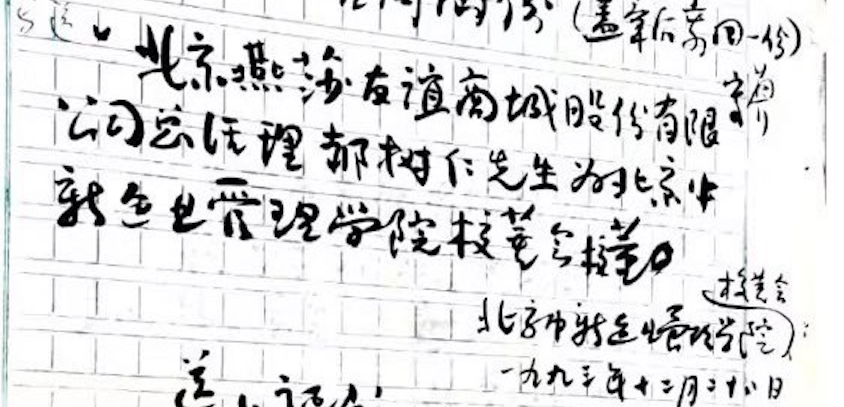 (盖章后寄回一份)
北京燕莎友谊商城股份有限
公司总经理郝树仁先生为北京市
新企业管理学院校董会校董。
校董会
北京市新企业管理学院
一九九三年十二月二十八日